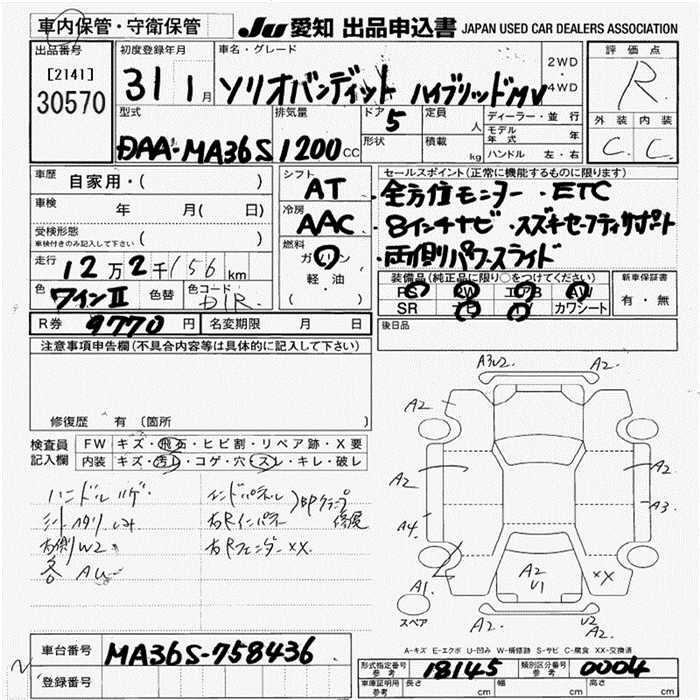 車内保管・守衛保管
JU 愛知 出品申込書 JAPAN USED CAR DEALERS ASSOCIATION
出品番号
[2141]
30570
初度登録年月
31 1月
車名・グレード
ソリオバンディット ハイブリッドMV
2WD
・
4WD
評価点
R
外装 内装
C C
型式
DAA-MA36S
排気量
1200cc
ドア
5
形状
定員 人
積載 kg
ディーラー・並行
モデル年式 年
ハンドル 左・右
車歴 自家用・( )
車検 年 月( 日)
受検形態
車検付きのみ記入して下さい ( )
走行 12万2千156km
色 ワインⅡ 色替 色コード D1R
R券 9770円 名変期限 月 日
シフト
AT
冷房
AAC
燃料
ガソリン
軽・油
( )
セールスポイント(正常に機能するものに限ります)
・全方位モニター・ETC
・8インチナビ・スズキセーフティサポート
・両側パワースライド
装備品(純正品に限り○をつけてください)
PS PW エアB AW
SR ナビ TV カワシート
新車保証書
有・無
後日品
注意事項申告欄(不具合内容等は具体的に記入して下さい)
修復歴 有 〔箇所 〕
検査員記入欄
FW キズ・飛石・ヒビ割・リペア跡・X要
内装 キズ・汚レ・コゲ・穴・スレ・キレ・破レ
ハンドルハゲ・
シートヘタリ
右側W2
各AU
エンドパネル
右Rインパネ
)BPクランプ
修尾
右RフェンダーXX.
A3W2. A2.
A2
A2
A2
A4
A3
A1
A2
U1
XX
スペア
A2
U2
A2
A-キズ E-エクボ U-凹み W-補修跡 S-サビ C-腐食 XX-交換済
車台番号 MA36S-758436
登録番号
型式指定番号
参考
18145
類別区分番号
参考
0004
車庫証明用
参考
長さ cm 幅 cm 高さ cm